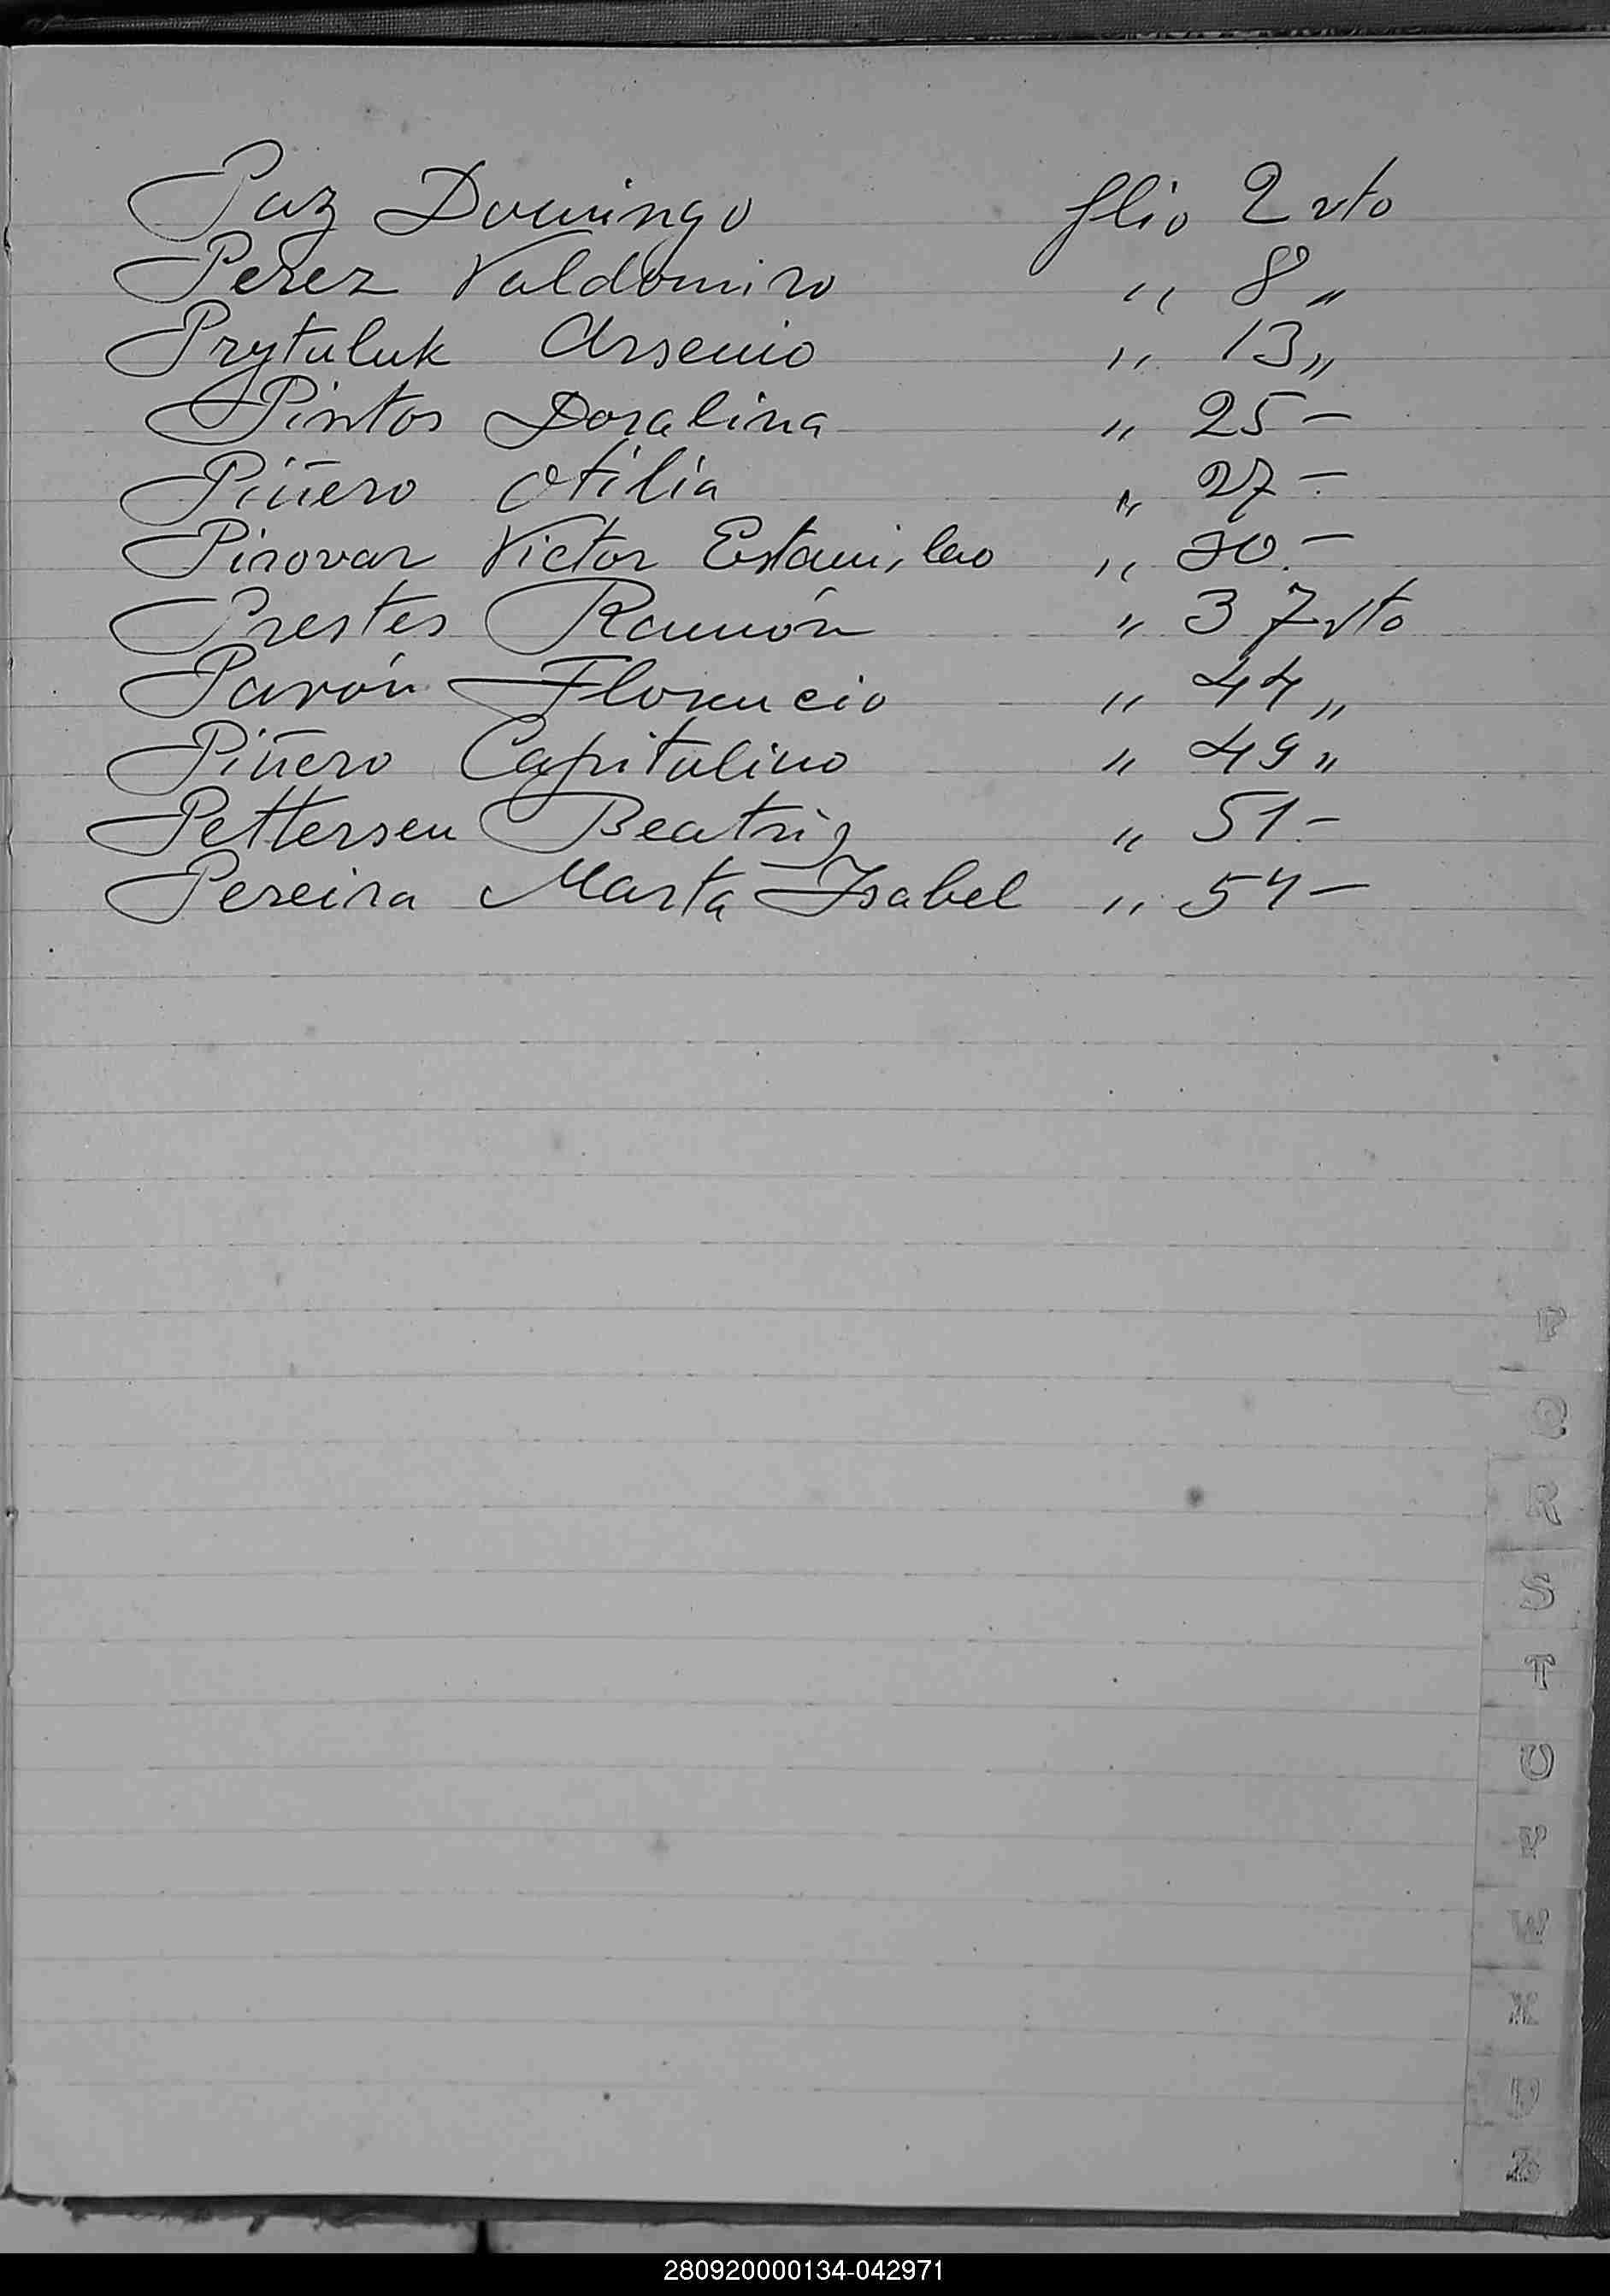 Paz Domingo flio 2 vto
Perez Valdomiro " 8 "
Prytuluk Arsenio " 13 "
Pintos Doralina " 25 –
Piñero Otilia " 27 –
Pirovar Victor Estanislao " 30 –
Prestes Ramón " 37 vto
Pavón Florencio " 44 "
Piñero Capitulino " 49 "
Pettersen Beatriz " 51 –
Pereira Marta Isabel " 54 –
P
Q
R
S
T
U
V
W
X
Z
280920000134-042971